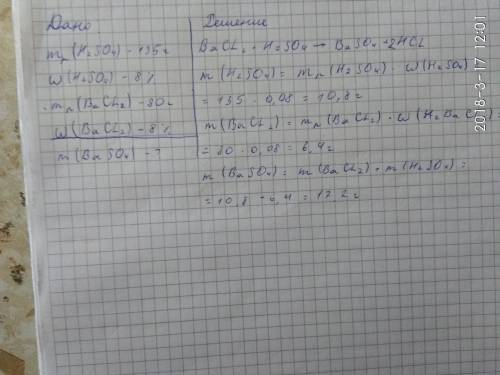 Дано
mр(H2SO4) - 135г
ω(H2SO4) - 8%
mр(BaCl2) - 80г
ω(BaCl2) - 8%
m(BaSO4) - ?
Решение
BaCl2 + H2SO4 → BaSO4 + 2HCl
m(H2SO4) = mр(H2SO4) · ω(H2SO4)
= 135 · 0,08 = 10,8г
m(BaCl2) = mр(BaCl2) · ω(BaCl2) =
= 80 · 0,08 = 6,4г
m(BaSO4) = m(BaCl2) + m(H2SO4) =
= 10,8 + 6,4 = 17,2г
2018-3-17 12:01